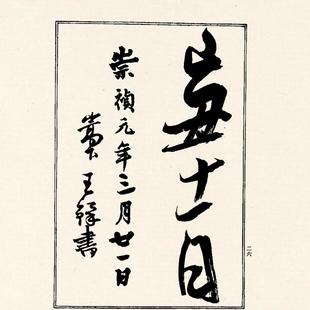 十一日
崇禎元年三月廿一日
嵩下王鐸書
二六